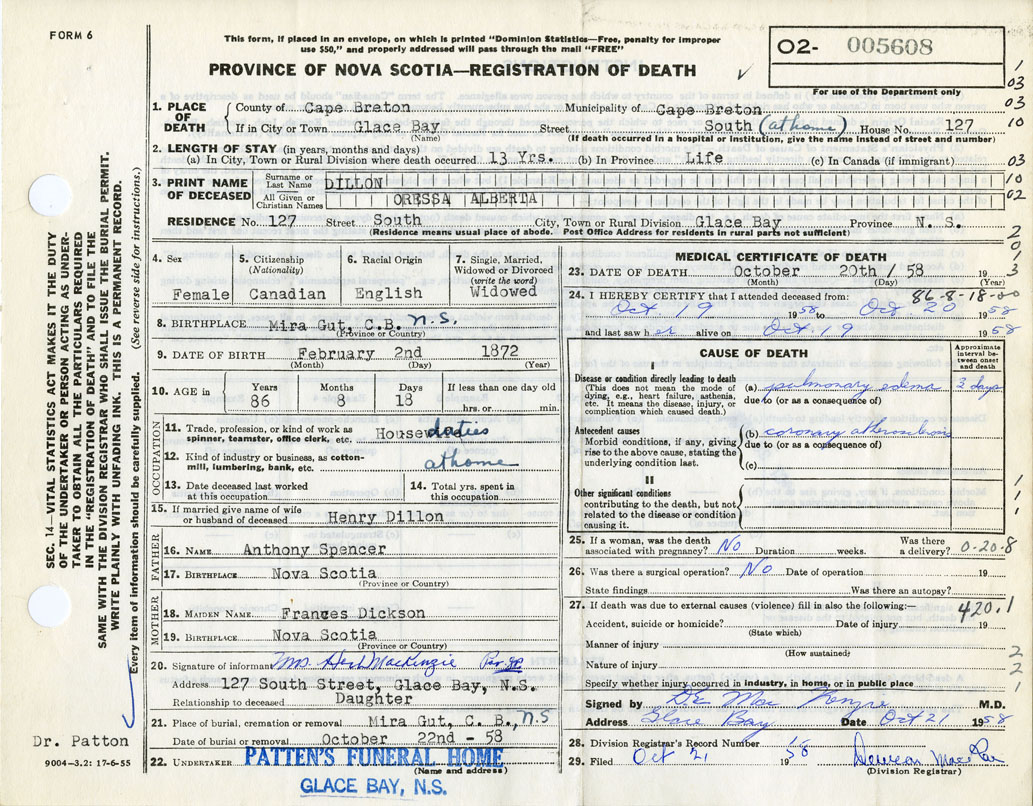 FORM 6
This form, if placed in an envelope, on which is printed "Dominion Statistics—Free, penalty for improper
use $50," and properly addressed will pass through the mail "FREE"
PROVINCE OF NOVA SCOTIA—REGISTRATION OF DEATH
O2- 005608
For use of the Department only
1. PLACE OF DEATH
County of Cape Breton Municipality of Cape Breton
If in City or Town Glace Bay Street South (at home) House No. 127
(Name) (If death occurred in a hospital or institution, give the name instead of street and number)
2. LENGTH OF STAY (in years, months and days)
(a) In City, Town or Rural Division where death occurred 13 Yrs. (b) In Province Life (c) In Canada (if immigrant)
3. PRINT NAME OF DECEASED
Surname or Last Name DILLON
All Given or Christian Names ORESSA ALBERTA
RESIDENCE No. 127 Street South City, Town or Rural Division Glace Bay Province N. S.
(Residence means usual place of abode. Post Office Address for residents in rural parts not sufficient)
4. Sex
Female
5. Citizenship
(Nationality)
Canadian
6. Racial Origin
English
7. Single, Married,
Widowed or Divorced
(write the word)
Widowed
8. BIRTHPLACE Mira Gut, C.B. N.S.
(Province or Country)
9. DATE OF BIRTH February 2nd 1872
(Month) (Day) (Year)
10. AGE in
Years Months Days If less than one day old
86 8 18 hrs. or min.
OCCUPATION
11. Trade, profession, or kind of work as
spinner, teamster, office clerk, etc. House duties
12. Kind of industry or business, as cotton-
mill, lumbering, bank, etc. at home
13. Date deceased last worked
at this occupation
14. Total yrs. spent in
this occupation
15. If married give name of wife
or husband of deceased Henry Dillon
FATHER
16. NAME Anthony Spencer
17. BIRTHPLACE Nova Scotia
(Province or Country)
MOTHER
18. MAIDEN NAME Frances Dickson
19. BIRTHPLACE Nova Scotia
(Province or Country)
20. Signature of informant Mrs. MacKenzie
Address 127 South Street, Glace Bay, N.S.
Relationship to deceased Daughter
21. Place of burial, cremation or removal Mira Gut, C. B., N.S
Date of burial or removal October 22nd - 58
22. UNDERTAKER PATTEN'S FUNERAL HOME
(Name and address)
GLACE BAY, N.S.
MEDICAL CERTIFICATE OF DEATH
23. DATE OF DEATH October 20th / 58 19
(Month) (Day) (Year)
86-8-18-00
24. I HEREBY CERTIFY that I attended deceased from:
Oct. 19 1958 to Oct. 20 1958
and last saw her alive on Oct. 19 1958
CAUSE OF DEATH
Approximate
interval be-
tween onset
and death
I
Disease or condition directly leading to death
(This does not mean the mode of
dying, e.g., heart failure, asthenia,
etc. It means the disease, injury, or
complication which caused death.)
(a) pulmonary edema 2 days
due to (or as a consequence of)
Antecedent causes
Morbid conditions, if any, giving
rise to the above cause, stating the
underlying condition last.
(b) coronary
due to (or as a consequence of)
(c)
II
Other significant conditions
contributing to the death, but not
related to the disease or condition
causing it.
25. If a woman, was the death
associated with pregnancy? No Duration weeks. Was there
a delivery? 0-20-8
26. Was there a surgical operation? No Date of operation 19
State findings Was there an autopsy?
27. If death was due to external causes (violence) fill in also the following:— 420.1
Accident, suicide or homicide? Date of injury 19
(State which)
Manner of injury
(How sustained)
Nature of injury
Specify whether injury occurred in industry, in home, or in public place
Signed by M.D.
Address Glace Bay Date Oct 21 1958
28. Division Registrar's Record Number
29. Filed Oct 21 1958
(Division Registrar)
SEC. 14—VITAL STATISTICS ACT MAKES IT THE DUTY
OF THE UNDERTAKER OR PERSON ACTING AS UNDER-
TAKER TO OBTAIN ALL THE PARTICULARS REQUIRED
IN THE "REGISTRATION OF DEATH" AND TO FILE THE
SAME WITH THE DIVISION REGISTRAR WHO SHALL ISSUE THE BURIAL PERMIT.
WRITE PLAINLY WITH UNFADING INK. THIS IS A PERMANENT RECORD.
Every item of information should be carefully supplied. (See reverse side for instructions.)
Dr. Patton
9004—3.2: 17-6-55
1
03
03
10
03
10
02
2
0
1
3
1
1
1
2
2
1